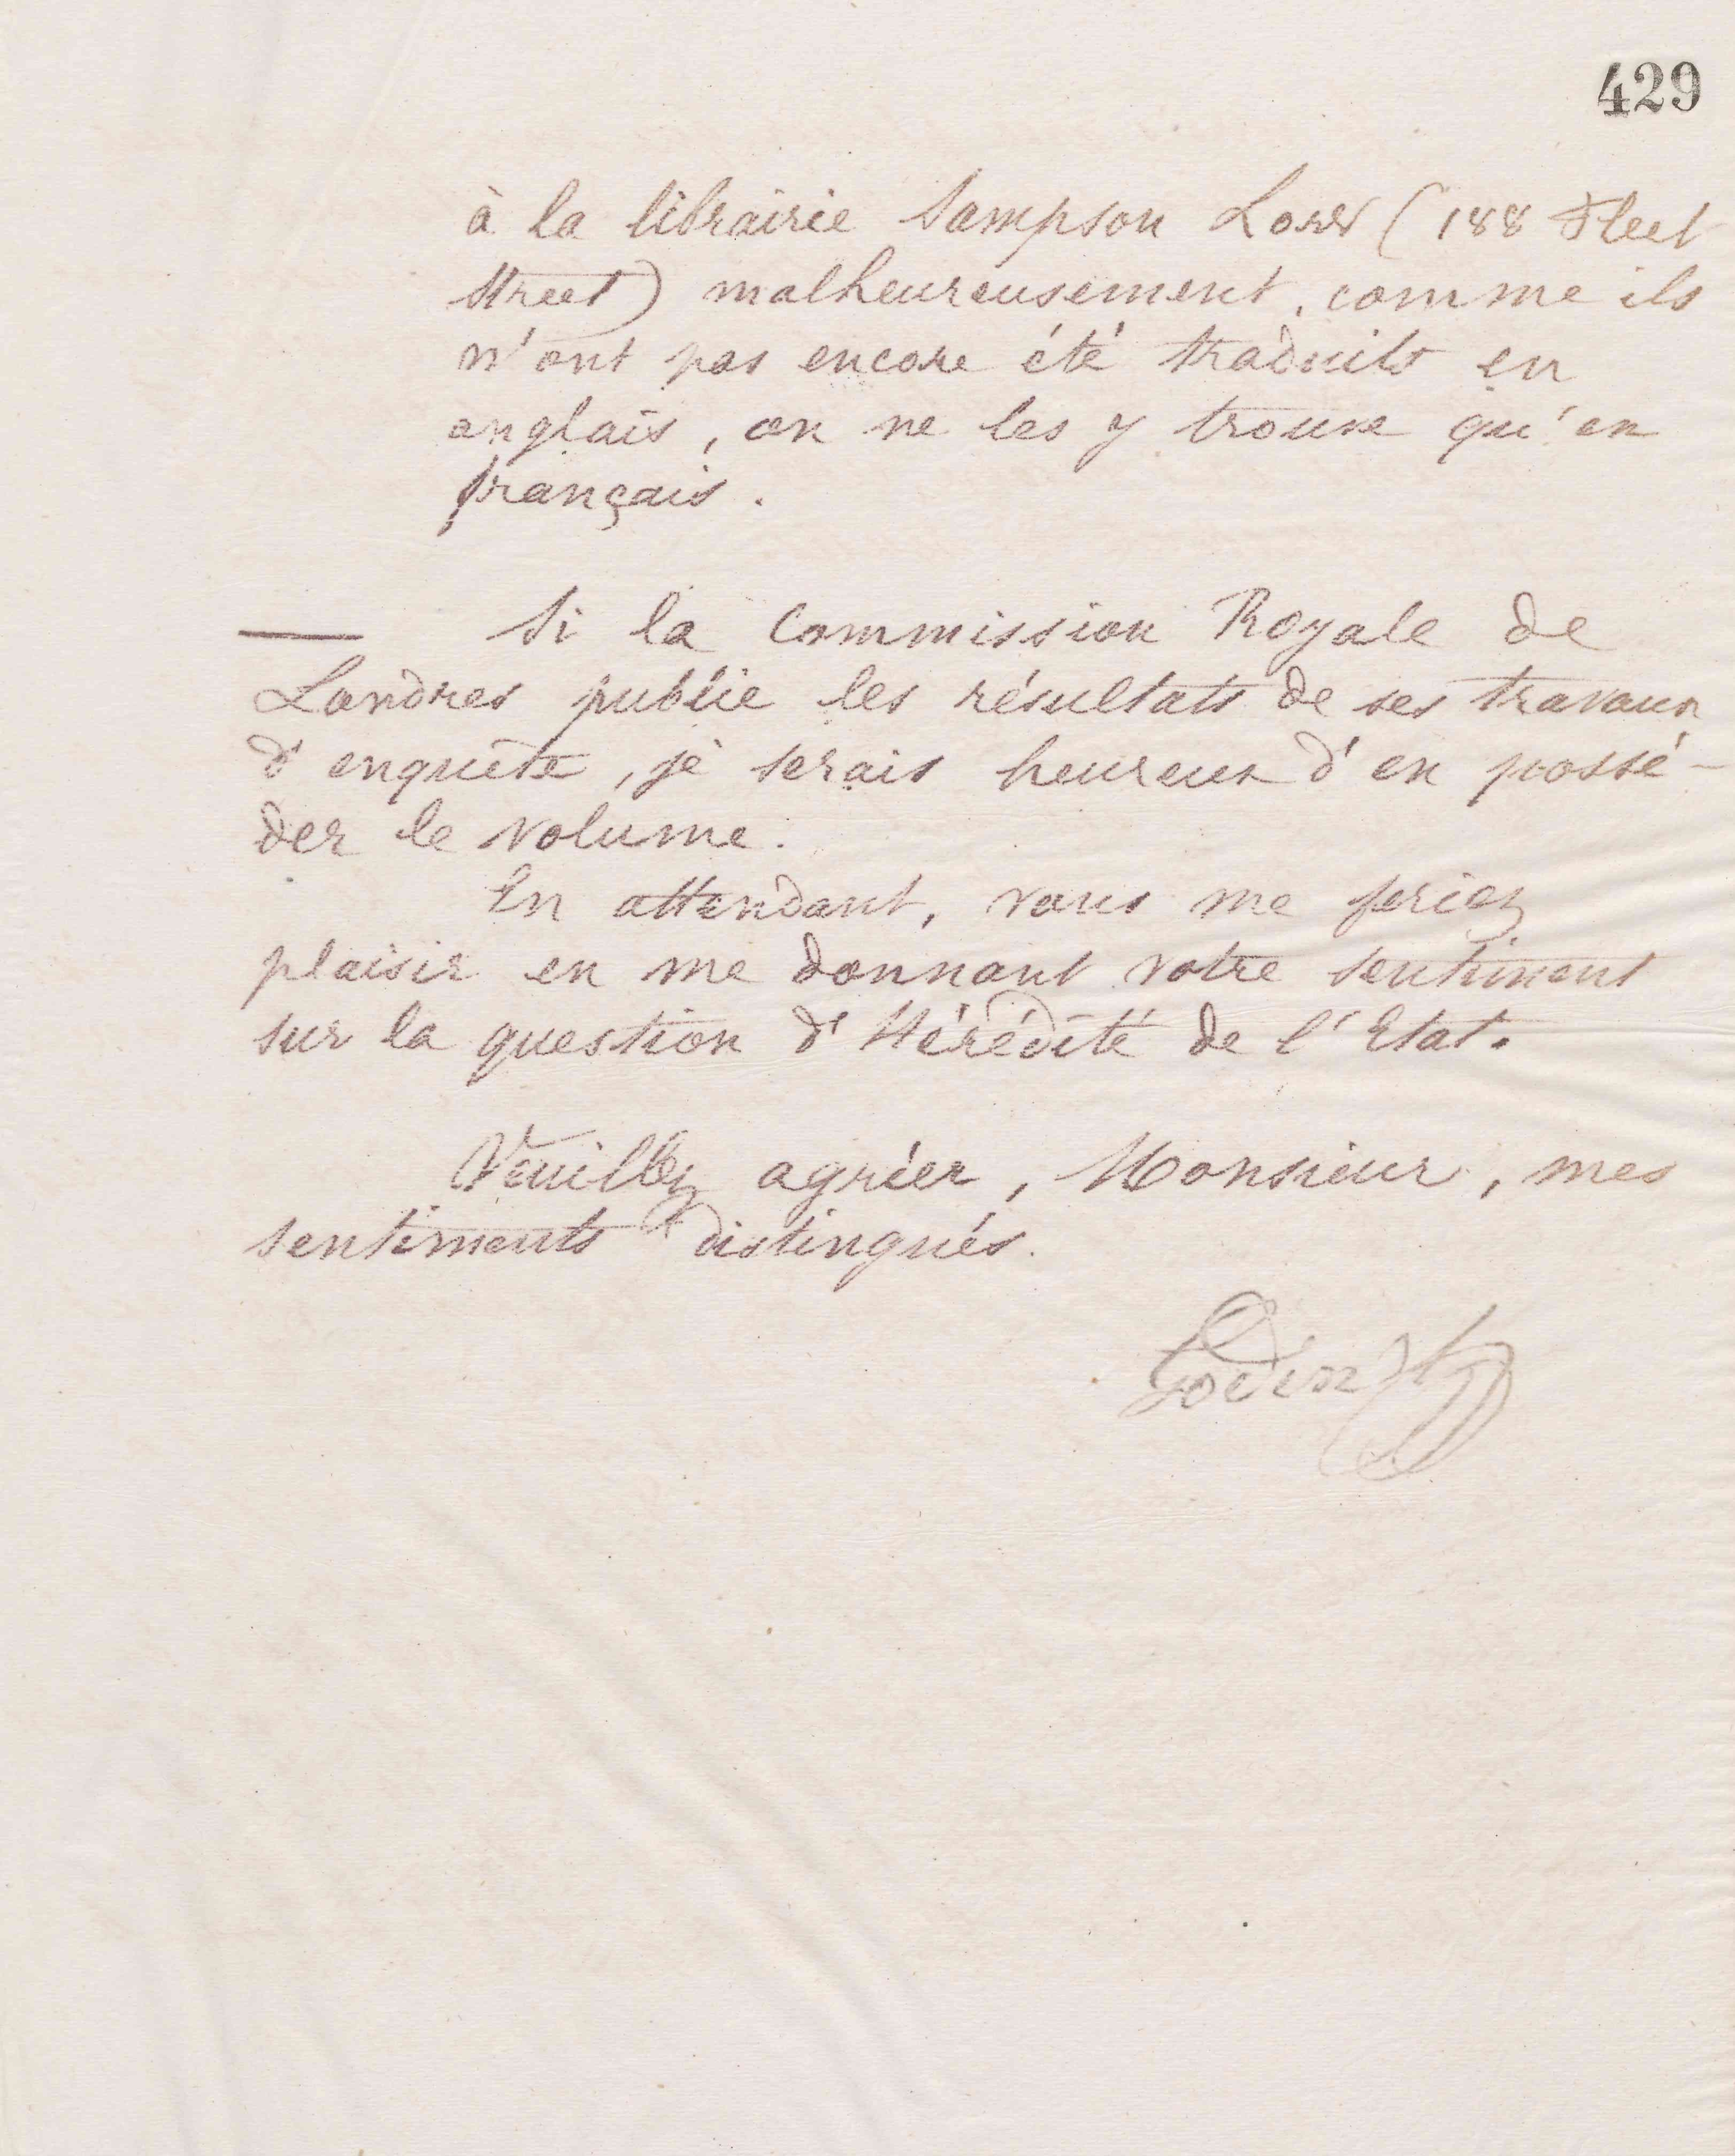 429
à la librairie Sampson Low (188 Fleet
Street) malheureusement, comme ils
n'ont pas encore été traduits en
anglais, on ne les y trouve qu'en
français.
— Si la Commission Royale de
Londres publie les résultats de ses travaux
d'enquête, je serais heureux d'en possé-
der le volume.
En attendant, vous me feriez
plaisir en me donnant votre sentiment
sur la question d'Hérédité de l'Etat.
Veuillez agréer, Monsieur, mes
sentiments distingués.
Godin